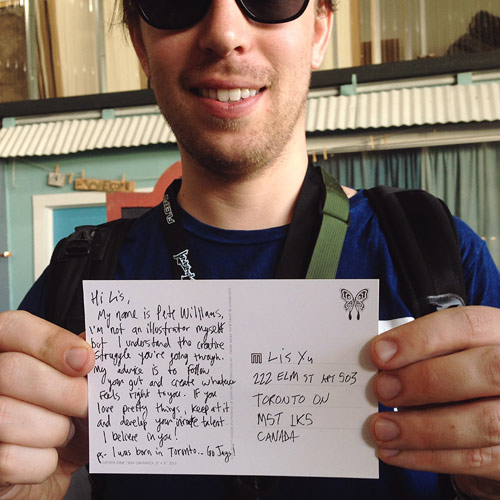 Hi Lis,
My name is Pete Williams,
I'm not an illustrator myself
but I understand the creative
struggle you're going through.
My advice is to follow
your gut and create whatever
feels right to you. If you
love pretty things, keep at it
and develop your innate talent
I believe in you!
ps- I was born in Toronto... Go Jays!
Lis Xu
222 ELM ST APT 503
TORONTO ON
M5T 1K5
CANADA